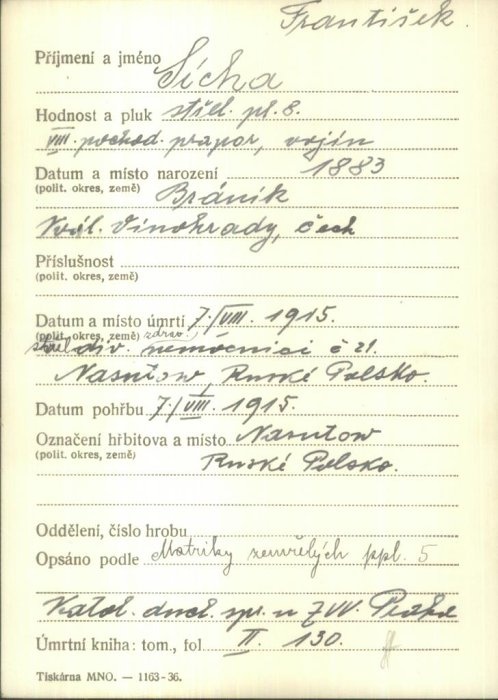 František.
Příjmení a jméno Sícha
Hodnost a pluk střel. pl. 8.
VIII. pochod. prapor, vojín
Datum a místo narození 1883
(polit. okres, země) Bráník
Král. Vinohrady, Čech
Příslušnost
(polit. okres, země)
Datum a místo úmrtí 7./VIII. 1915.
(polit. okres, země) zdrav.
střel. div. nemocnici č 21.
Nasutow, Ruské Polsko.
Datum pohřbu 7./VIII. 1915.
Označení hřbitova a místo Nasutow
(polit. okres, země) Ruské Polsko.
Oddělení, číslo hrobu
Opsáno podle Matriky zemřelých ppl. 5
Katol. duch. spr. u ZVV. Praha
Úmrtní kniha: tom., fol. II. 130.
Tiskárna MNO. — 1163-36.